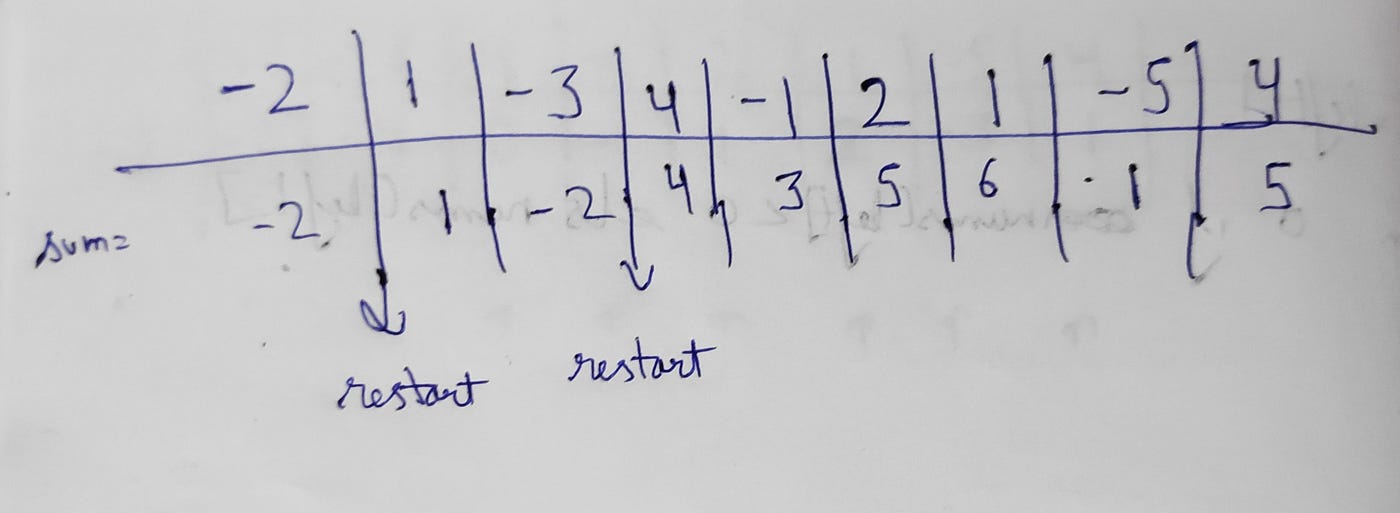 -2 | 1 | -3 | 4 | -1 | 2 | 1 | -5 | 4
sum= -2 | 1 | -2 | 4 | 3 | 5 | 6 | -1 | 5
restart restart